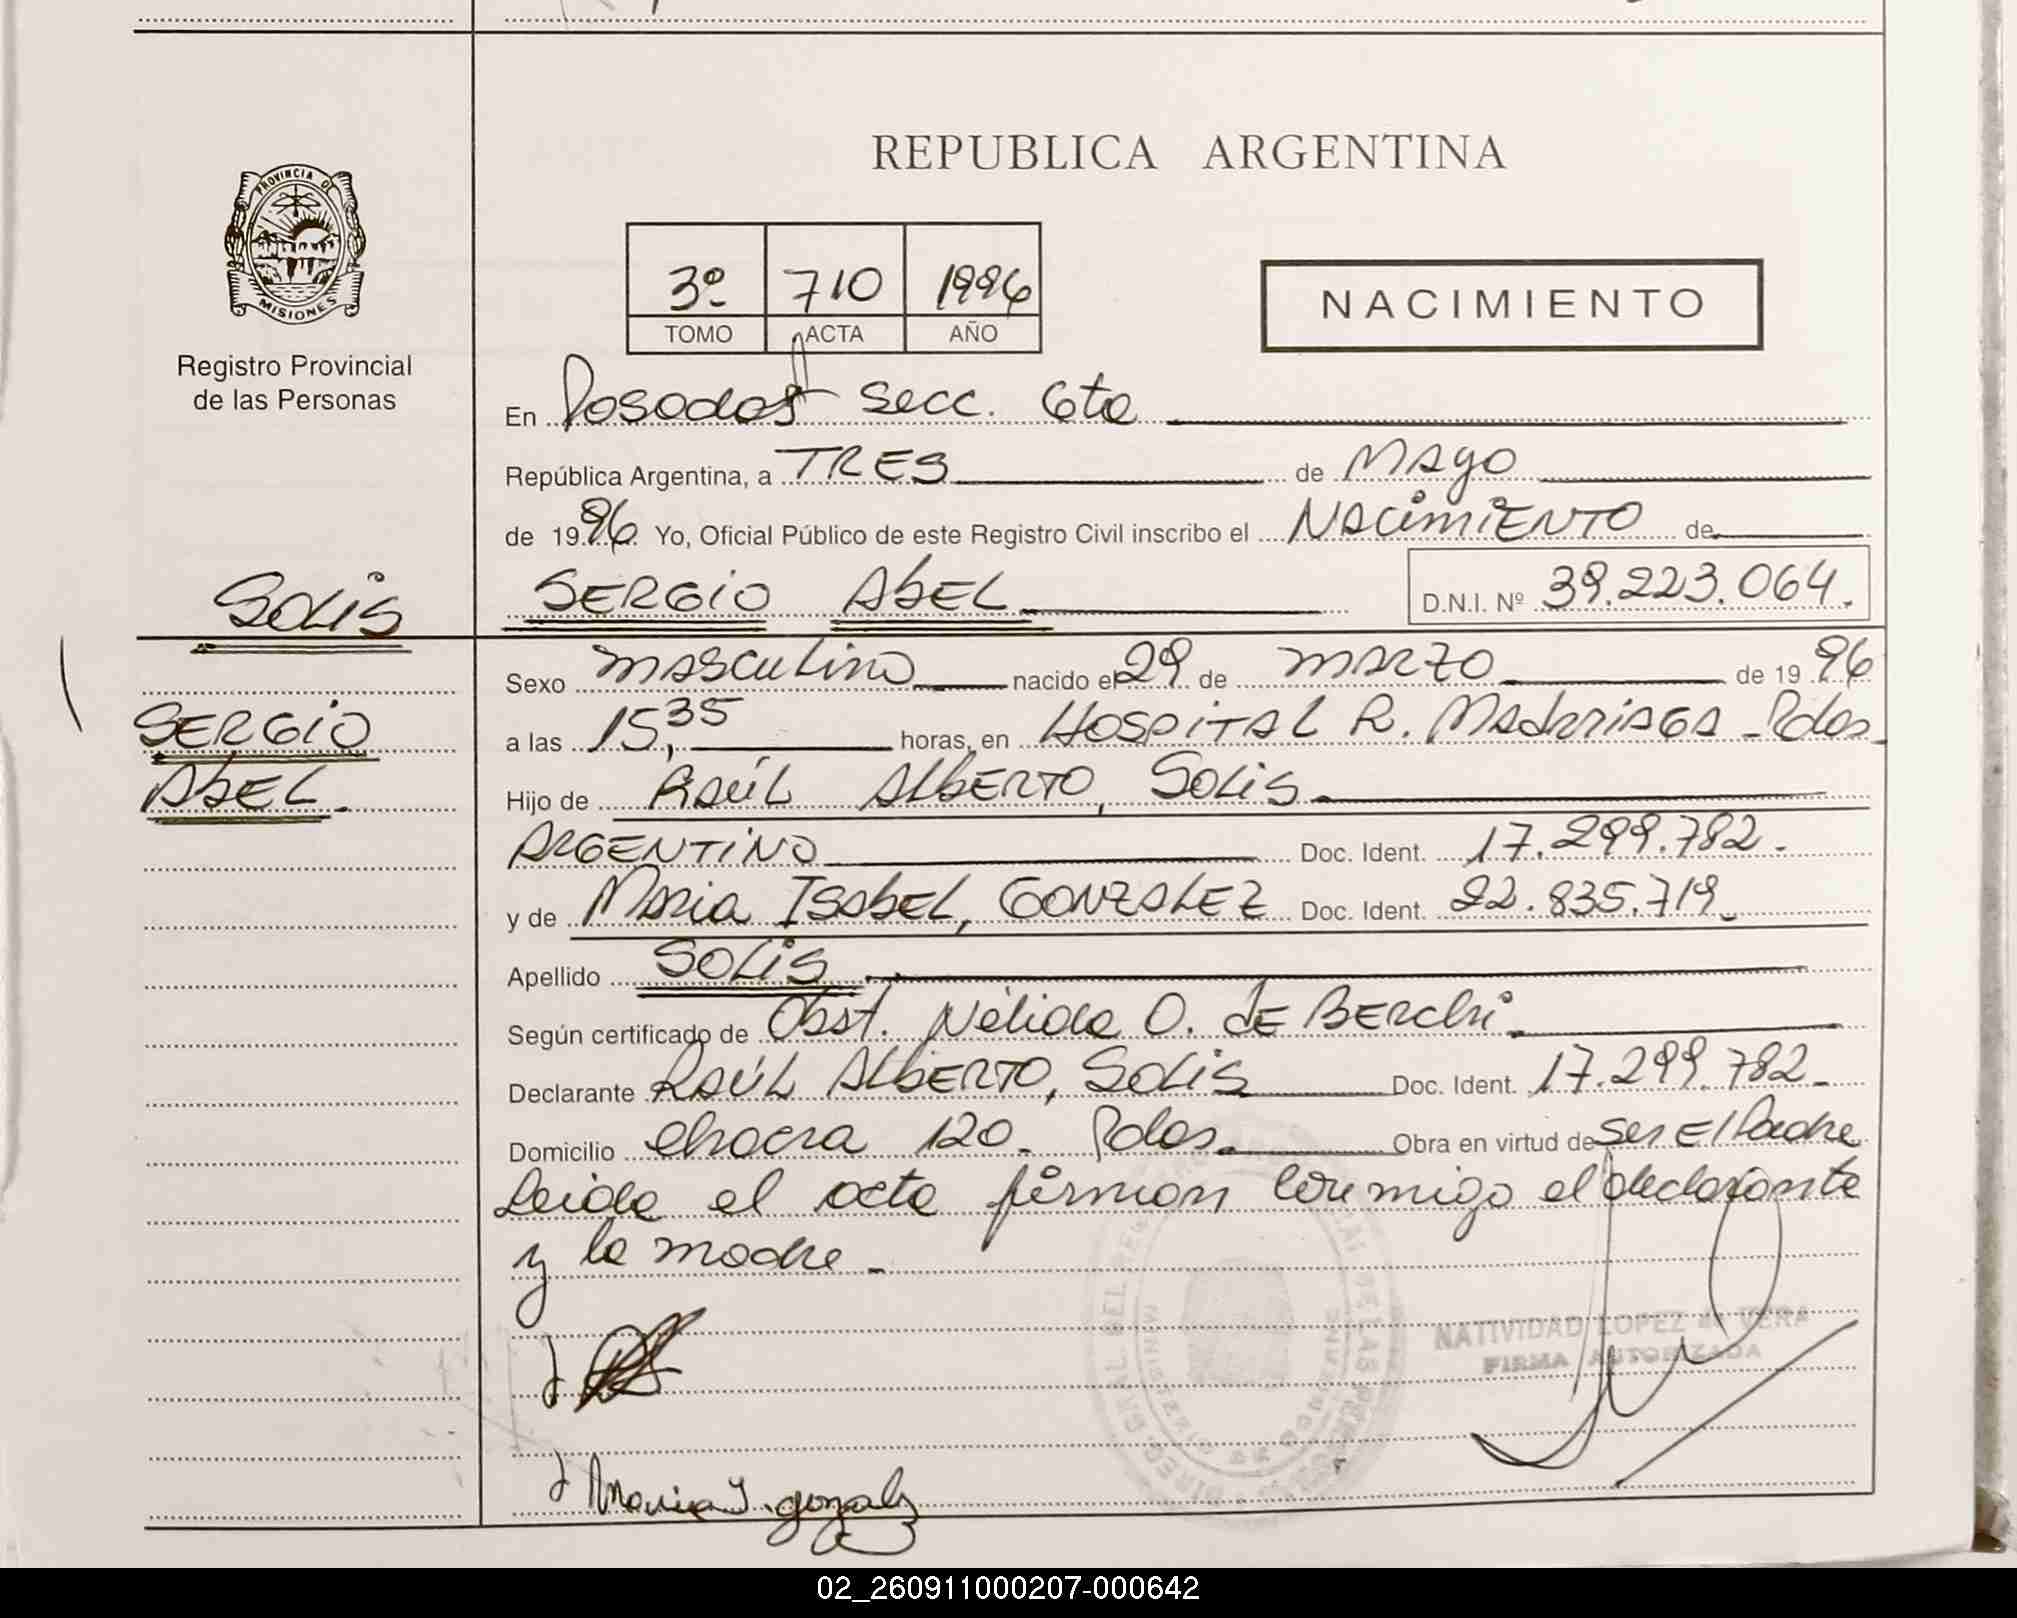 REPUBLICA ARGENTINA
PROVINCIA DE
MISIONES
Registro Provincial
de las Personas
3º 710 1996
TOMO ACTA AÑO
NACIMIENTO
En Posadas Secc. 6ta
República Argentina, a TRES de Mayo
de 1996 Yo, Oficial Público de este Registro Civil inscribo el NACIMIENTO de
SOLIS
SERGIO ABEL D.N.I. Nº 39.223.064.
Sexo masculino nacido el 29 de MARZO de 1996
SERGIO
a las 15,35 horas, en HOSPITAL R. Madariaga - Pdas-
ABEL.
Hijo de RAÚL ALBERTO, SOLIS.
ARGENTINO Doc. Ident. 17.299.782.
y de Maria ISABEL, GONZALEZ Doc. Ident. 22.835.719.
Apellido SOLIS.
Según certificado de Obst. Nélida O. de BERchi.
Declarante RAÚL ALBERTO, SOLIS Doc. Ident. 17.299.782.
Domicilio chacra 120. Pdas. Obra en virtud de ser El Padre
Leida el acta firman conmigo el declarante
y la madre.
NATIVIDAD LOPEZ de VERA
FIRMA AUTORIZADA
Maria I. gonzalz
02_260911000207-000642